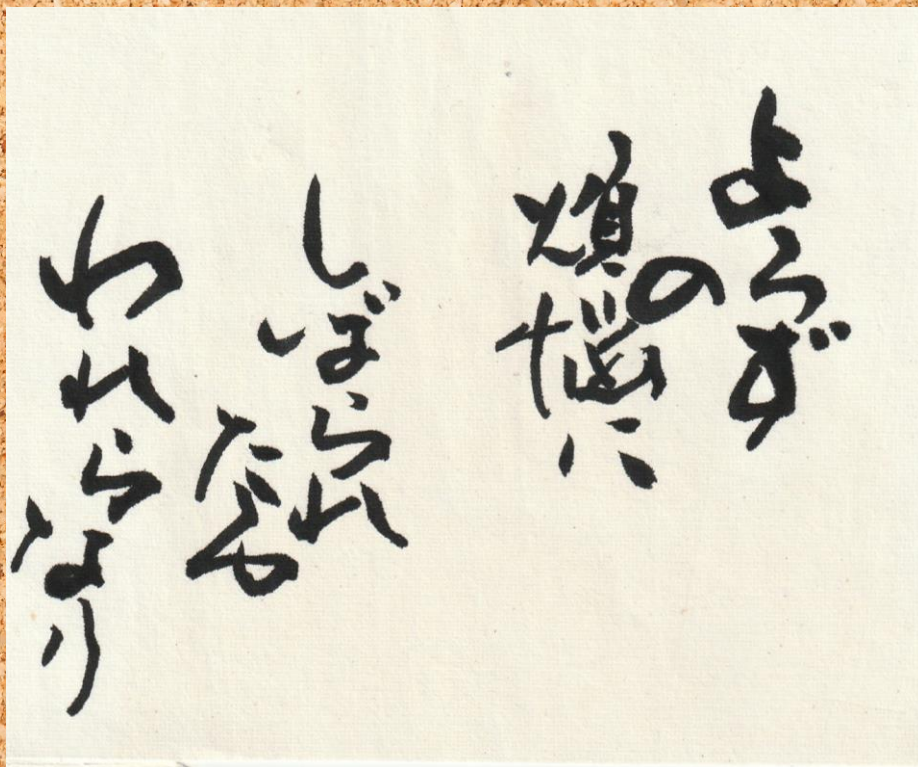 よろず
の
煩悩に
しばられ
たる
われらなり